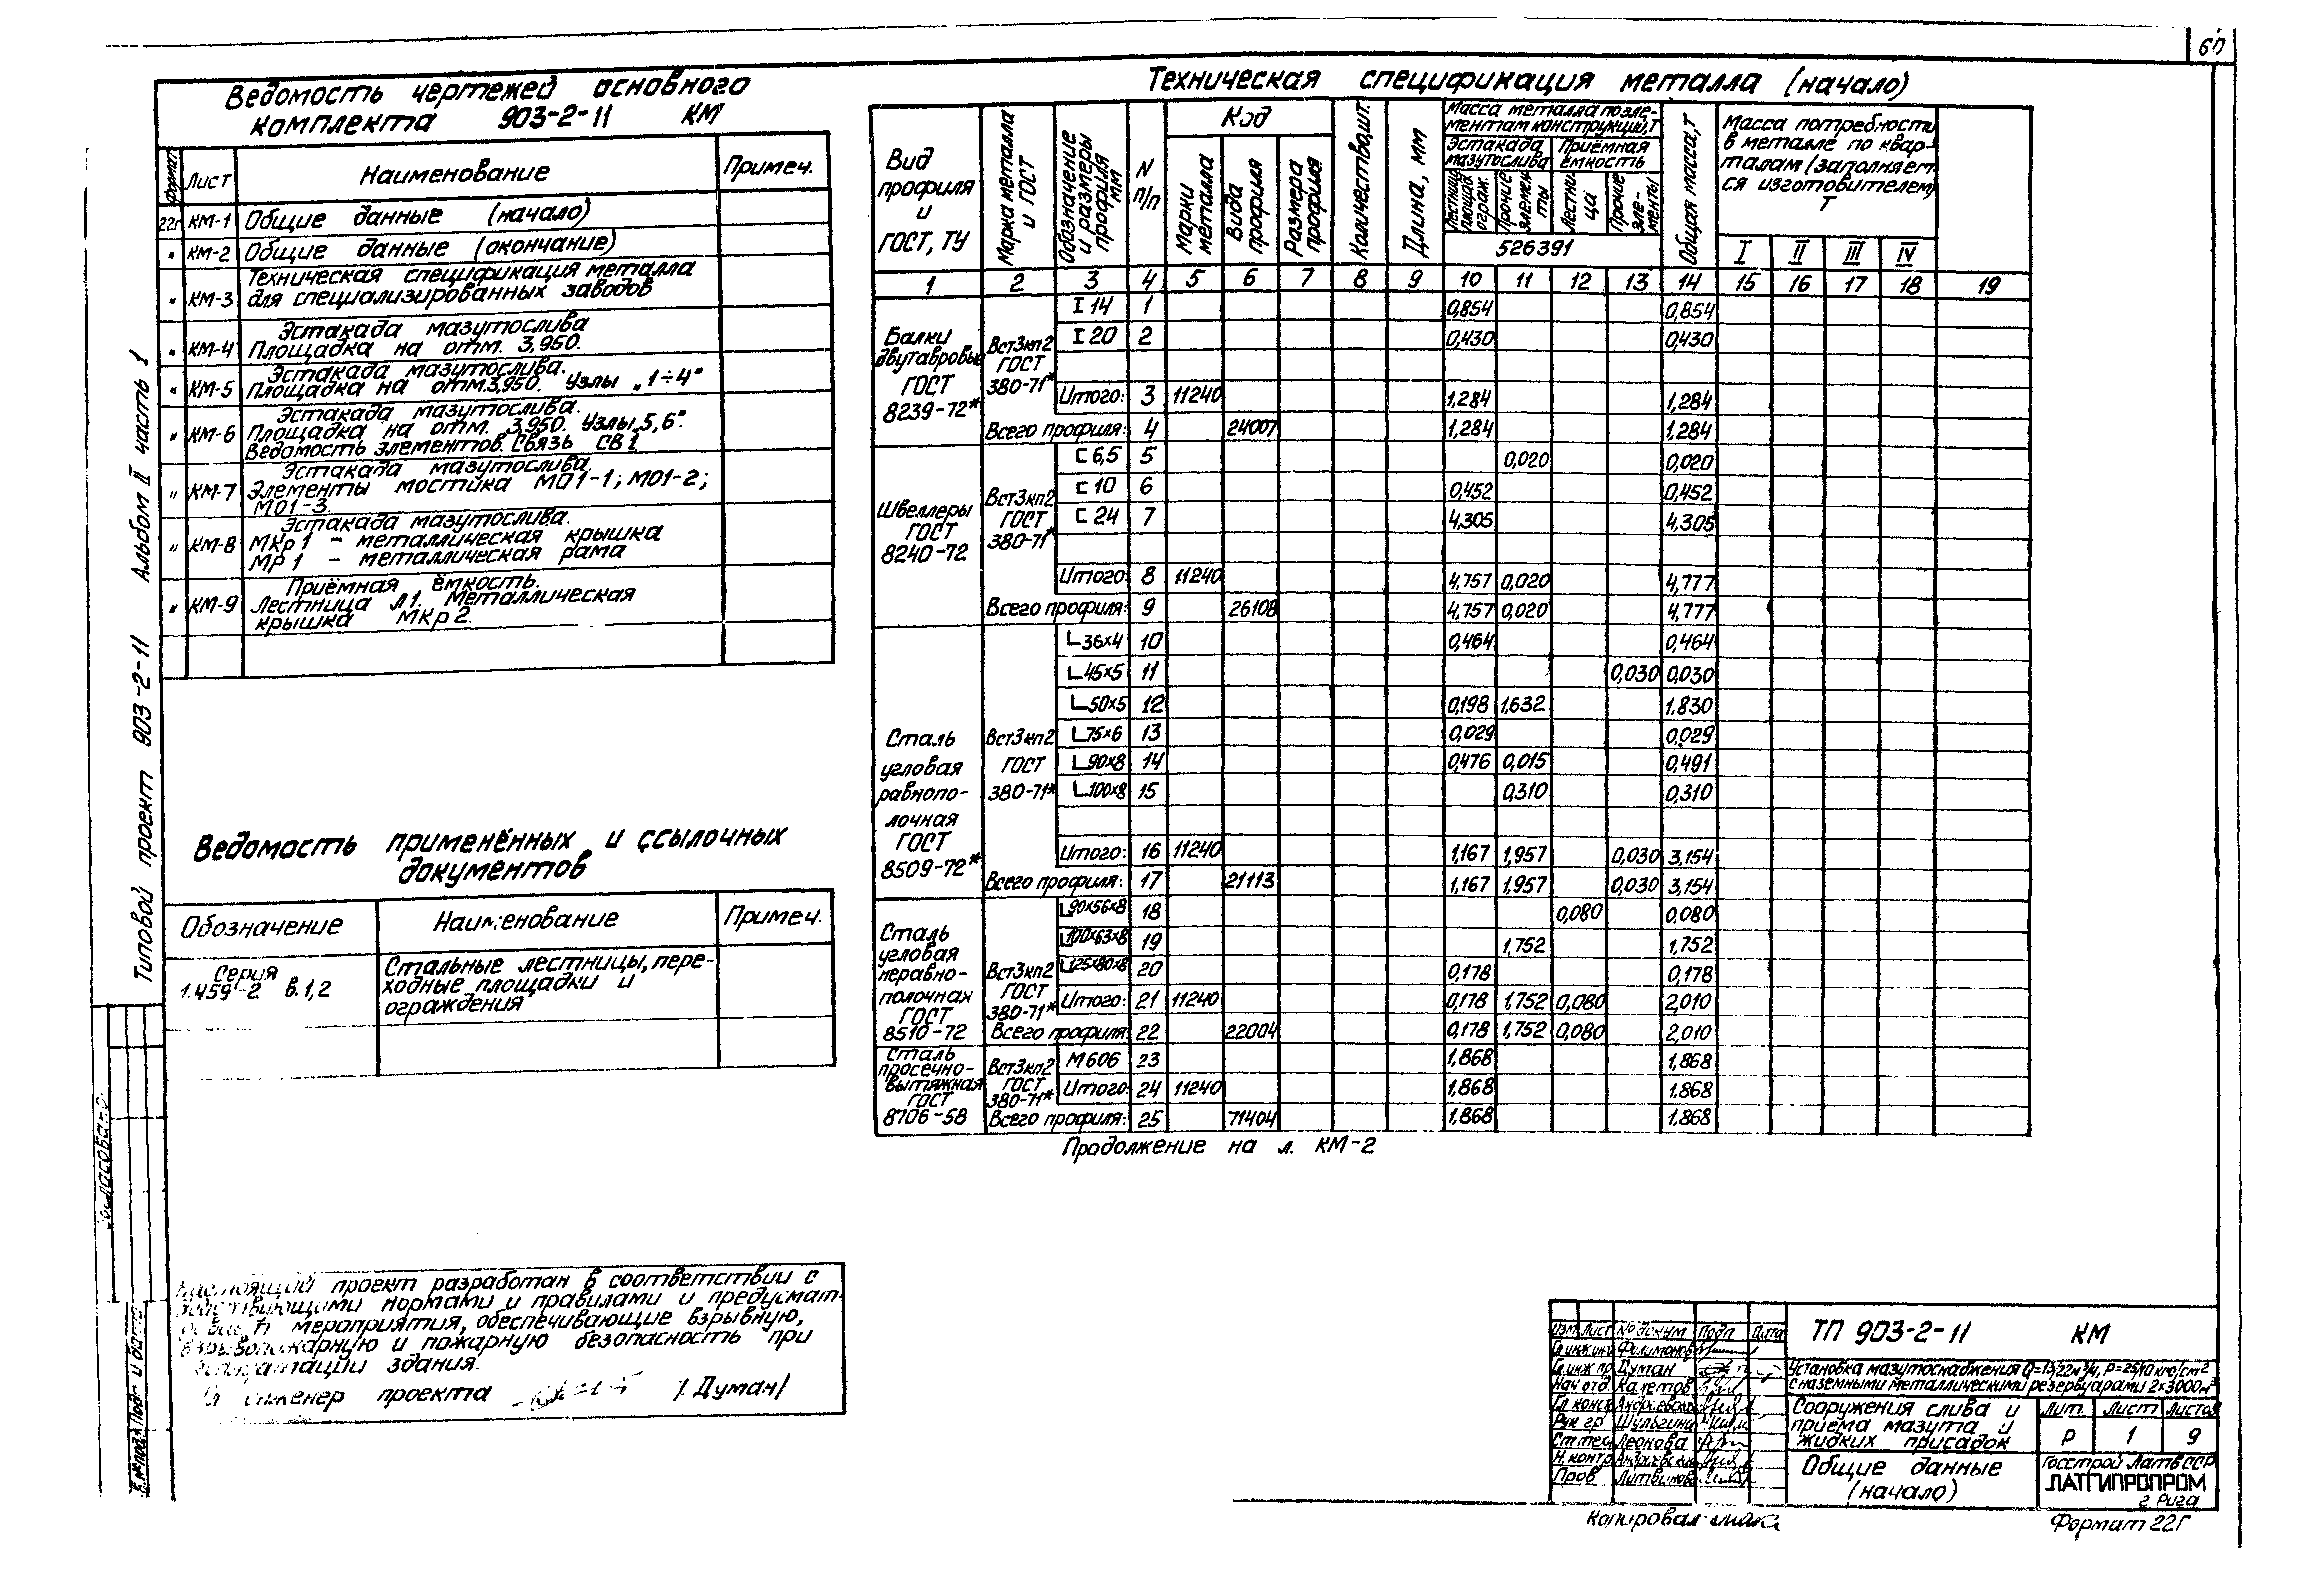 60
Ведомость чертежей основного
комплекта 903-2-11 КМ
формат Лист Наименование Примеч.
22г КМ-1 Общие данные (начало)
" КМ-2 Общие данные (окончание)
Техническая спецификация металла
" КМ-3 для специализированных заводов
Эстакада мазутослива
" КМ-4 Площадка на отм. 3,950.
Эстакада мазутослива.
" КМ-5 Площадка на отм.3,950. Узлы „1÷4"
Эстакада мазутослива.
" КМ-6 Площадка на отм. 3,950. Узлы „5,6".
Ведомость элементов. Связь СВ1
Эстакада мазутослива.
" КМ-7 Элементы мостика МО1-1; МО1-2;
МО1-3.
Эстакада мазутослива.
" КМ-8 МКр1 - металлическая крышка
МР1 - металлическая рама
Приёмная ёмкость.
" КМ-9 Лестница Л1. Металлическая
крышка МКр2.
Ведомость применённых и ссылочных
документов
Обозначение Наименование Примеч.
Серия
1.459-2 в.1,2
Стальные лестницы, пере-
ходные площадки и
ограждения
Типовой проект 903-2-11 Альбом II часть 1
Согласовано:
проект разработан в соответствии с
нормами и правилами и предусмат-
мероприятия, обеспечивающие взрывную,
и пожарную безопасность при
здания.
инженер проекта /Думан/
Техническая спецификация металла (начало)
Вид профиля и ГОСТ, ТУ
Марка металла и ГОСТ
Обозначение и размеры профиля мм
N п/п
Код
Марки металла
Вида профиля
Размера профиля
Количество,шт.
Длина, мм
Масса металла по эле-
ментам конструкций,т
Эстакада мазутослива
Приёмная ёмкость
Лестницы площад. ограж.
Прочие элементы
Лестницы
Прочие элементы
526391
Общая масса, т
Масса потребности
в металле по квар-
талам (заполняет-
ся изготовителем)
Т
I II III IV
1 2 3 4 5 6 7 8 9 10 11 12 13 14 15 16 17 18 19
Балки двутавровые ГОСТ 8239-72*
Вст3кп2 ГОСТ 380-71*
I 14 1 0,854 0,854
I 20 2 0,430 0,430
Итого: 3 11240 1,284 1,284
Всего профиля: 4 24007 1,284 1,284
Швеллеры ГОСТ 8240-72
Вст3кп2 ГОСТ 380-71*
[ 6,5 5 0,020 0,020
[ 10 6 0,452 0,452
[ 24 7 4,305 4,305
Итого: 8 11240 4,757 0,020 4,777
Всего профиля: 9 26108 4,757 0,020 4,777
Сталь угловая равнополочная ГОСТ 8509-72*
Вст3кп2 ГОСТ 380-71*
∟36x4 10 0,464 0,464
∟45x5 11 0,030 0,030
∟50x5 12 0,198 1,632 1.830
∟75x6 13 0,029 0,029
∟90x8 14 0,476 0,015 0,491
∟100x8 15 0,310 0,310
Итого: 16 11240 1,167 1,957 0,030 3,154
Всего профиля: 17 21113 1,167 1,957 0,030 3,154
Сталь угловая неравно-полочная ГОСТ 8510-72
Вст3кп2 ГОСТ 380-71*
∟90x56x8 18 0,080 0,080
∟100x63x8 19 1.752 1,752
∟125x80x8 20 0,178 0,178
Итого: 21 11240 0,178 1.752 0,080 2,010
Всего профиля: 22 22004 0,178 1.752 0,080 2,010
Сталь просечно-вытяжная ГОСТ 8706-58
Вст3кп2 ГОСТ 380-71*
М606 23 1.868 1.868
Итого: 24 11240 1.868 1.868
Всего профиля: 25 71404 1.868 1.868
Продолжение на л. КМ-2
Изм Лист № докум Подп Дата
Гл инж инс Филимонов
Гл инж пр Думан
Нач отд Калетов
Гл конст
Рук гр Шульгина
Ст тех Леонова
Н.контр
Пров Литвинова
ТП 903-2-11 КМ
Установка мазутоснабжения Q=13/22м³/ч, Р=25/10 кгс/см²
с наземными металлическими резервуарами 2×3000м³
Сооружения слива и
приема мазута и
жидких присадок
Лит. Лист Листов
Р 1 9
Общие данные
(начало)
Госстрой Латв ССР
ЛАТГИПРОПРОМ
г. Рига
Копировал
Формат 22Г